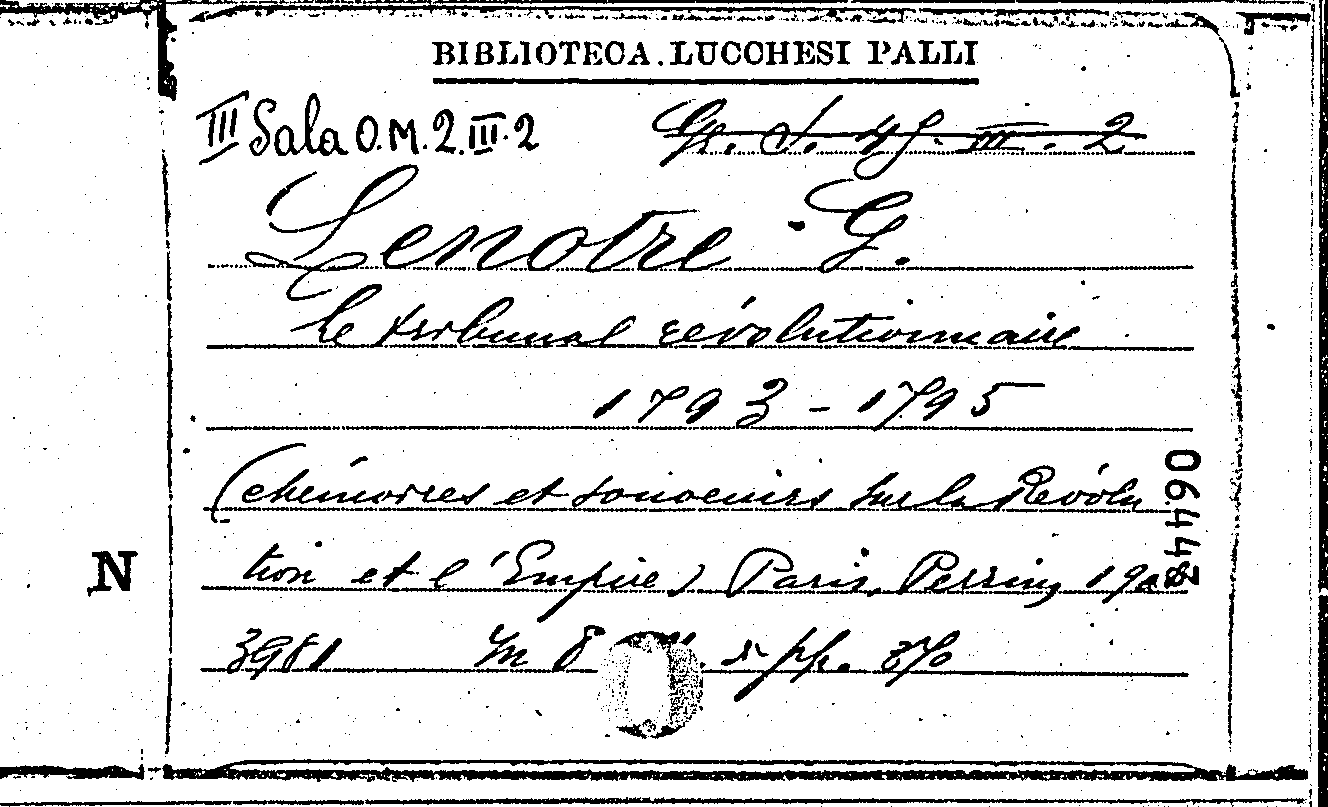 BIBLIOTECA LUCCHESI PALLI
III Sala O.M.2.III.2
Gr. S. 45. III. 2
Lenotre G.
Le tribunal révolutionnaire
1793-1795
(Mémoires et souvenirs sur la Révolu
tion et l'Empire) Paris, Perrin, 1908
3981 In 8 pp. 370
064483
N